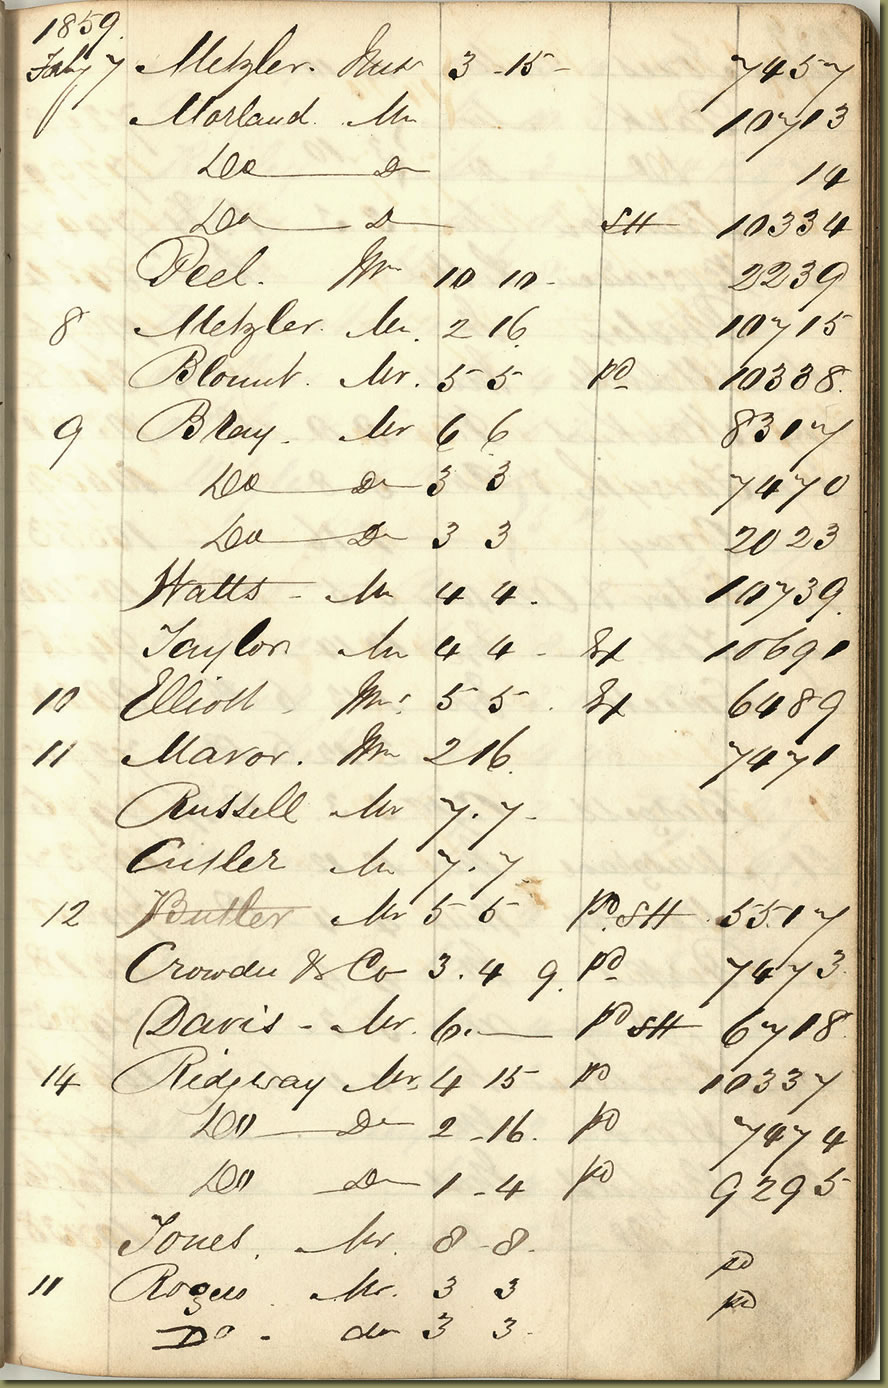 1859
Feby 7 Metzler. Mess 3 - 15 - 7457
Morland. Mr 10713
Do Do 14
Do Do SH 10334
Peel. Mr 10 10 - 2239
8 Metzler. Mr. 2 16. 10715
Blount. Mr. 5 5 pd 10338.
9 Bray. Mr 6 6 8317
Do Do 3 3 7470
Do Do 3 3 2023
Watts - Mr 4 4 . 10739.
Taylor Mr 4 4 - Ex 10691
10 Elliott - Mr. 5 5 . Ex 6489
11 Mavor. Mr 2 16. 7471
Russell Mr 7. 7 -
Cutler Mr 7. 7
12 Butler Mr 5 5 pd. SH 5517
Crowder & Co 3. 4 9. pd 7473.
Davis - Mr. 6. — pd SH 6718
14 Ridgway Mr. 4 15 pd 10337
Do Do 2 - 16. pd 7474
Do Do 1 - 4 pd 9295
Jones. Mr. 8 - 8. pd
11 Rogers. Mr. 3 3 pd
Do - do 3 3 -